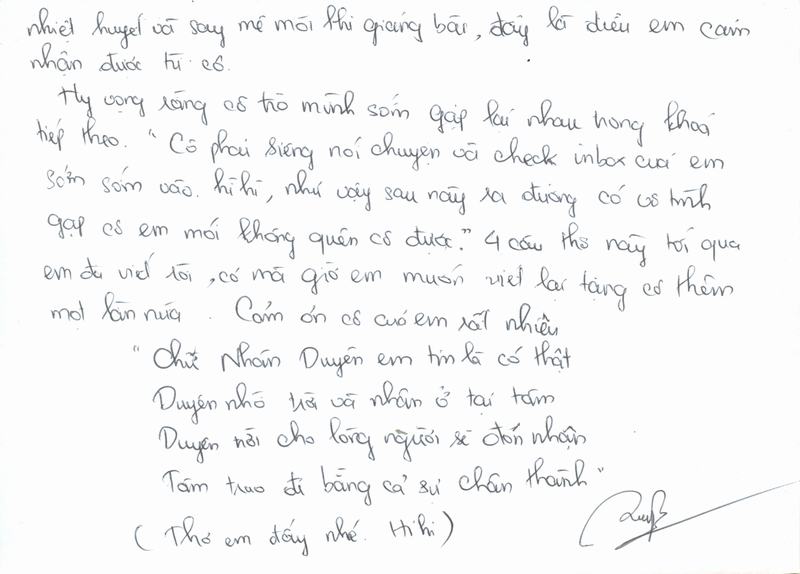 nhiệt huyết và say mê mỗi khi giảng bài, đây là điều em cảm
nhận được từ cô.
Hy vọng rằng cô trò mình sớm gặp lại nhau trong khoá
tiếp theo. "Cô phải siêng nói chuyện và check inbox của em
sớm sớm vào. hihi, như vậy sau này ra đường có vô tình
gặp cô em mới không quên cô được." 4 câu thơ này tối qua
em đã viết rồi, cô mà giờ em muốn viết lại tặng cô thêm
một lần nữa. Cảm ơn cô của em rất nhiều
"Chữ Nhân Duyên em tin là có thật
Duyên nhờ trời và nhân ở tại tâm
Duyên nối cho lòng người sẽ đón nhận
Tâm trao đi bằng cả sự chân thành"
(Thơ em đấy nhé. Hihi)